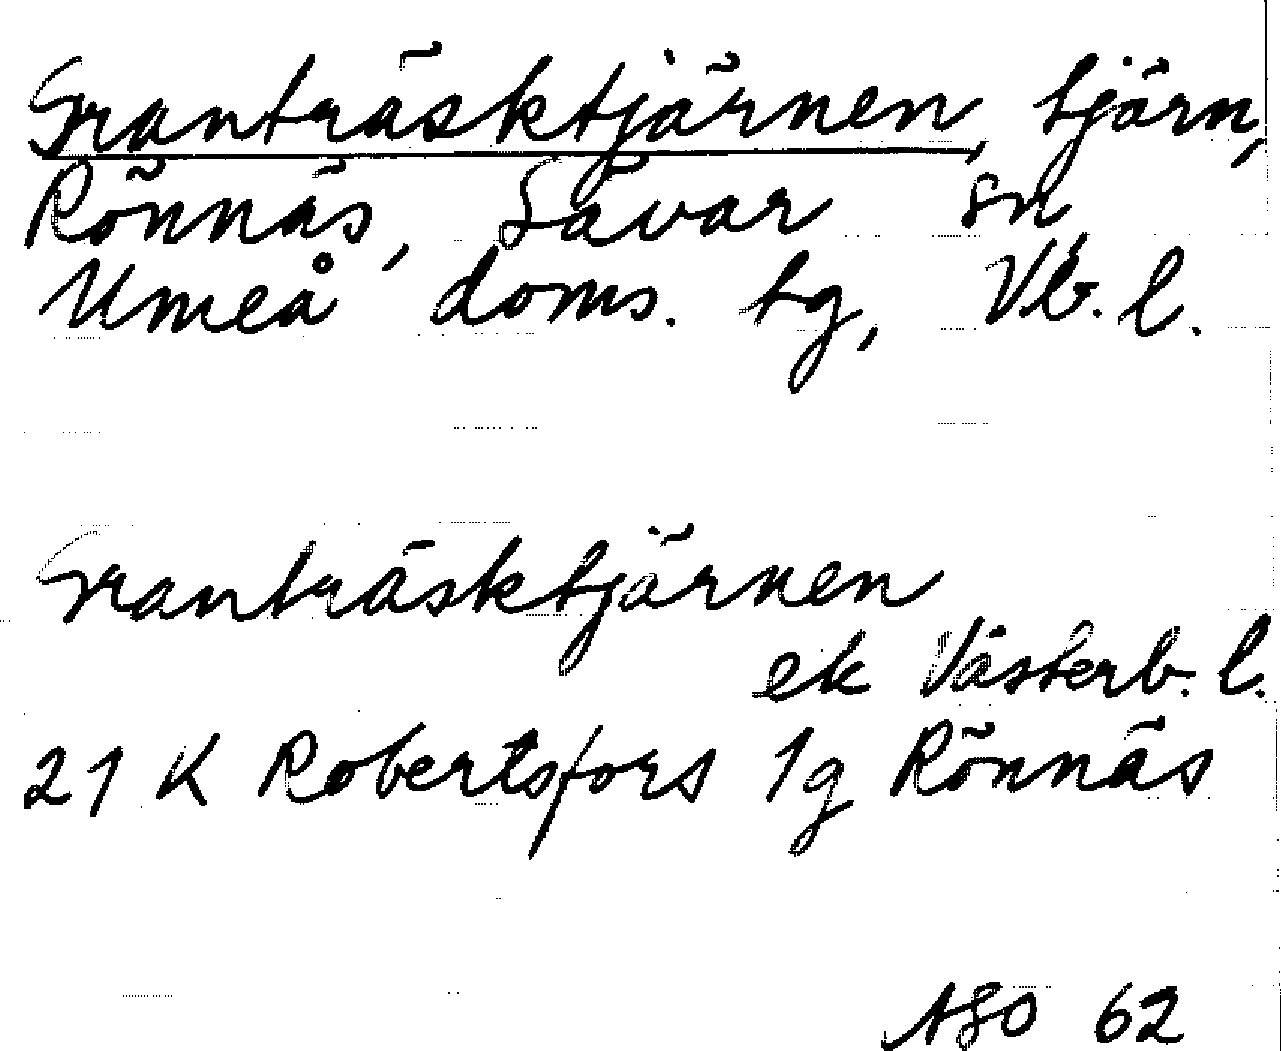 Granträsktjärnen, tjärn,
Rönnäs, Sävar sn,
Umeå doms. tg, Vb. l.
Granträsktjärnen
ek Västerb. l.
21 K Robertsfors 1g Rönnäs
62